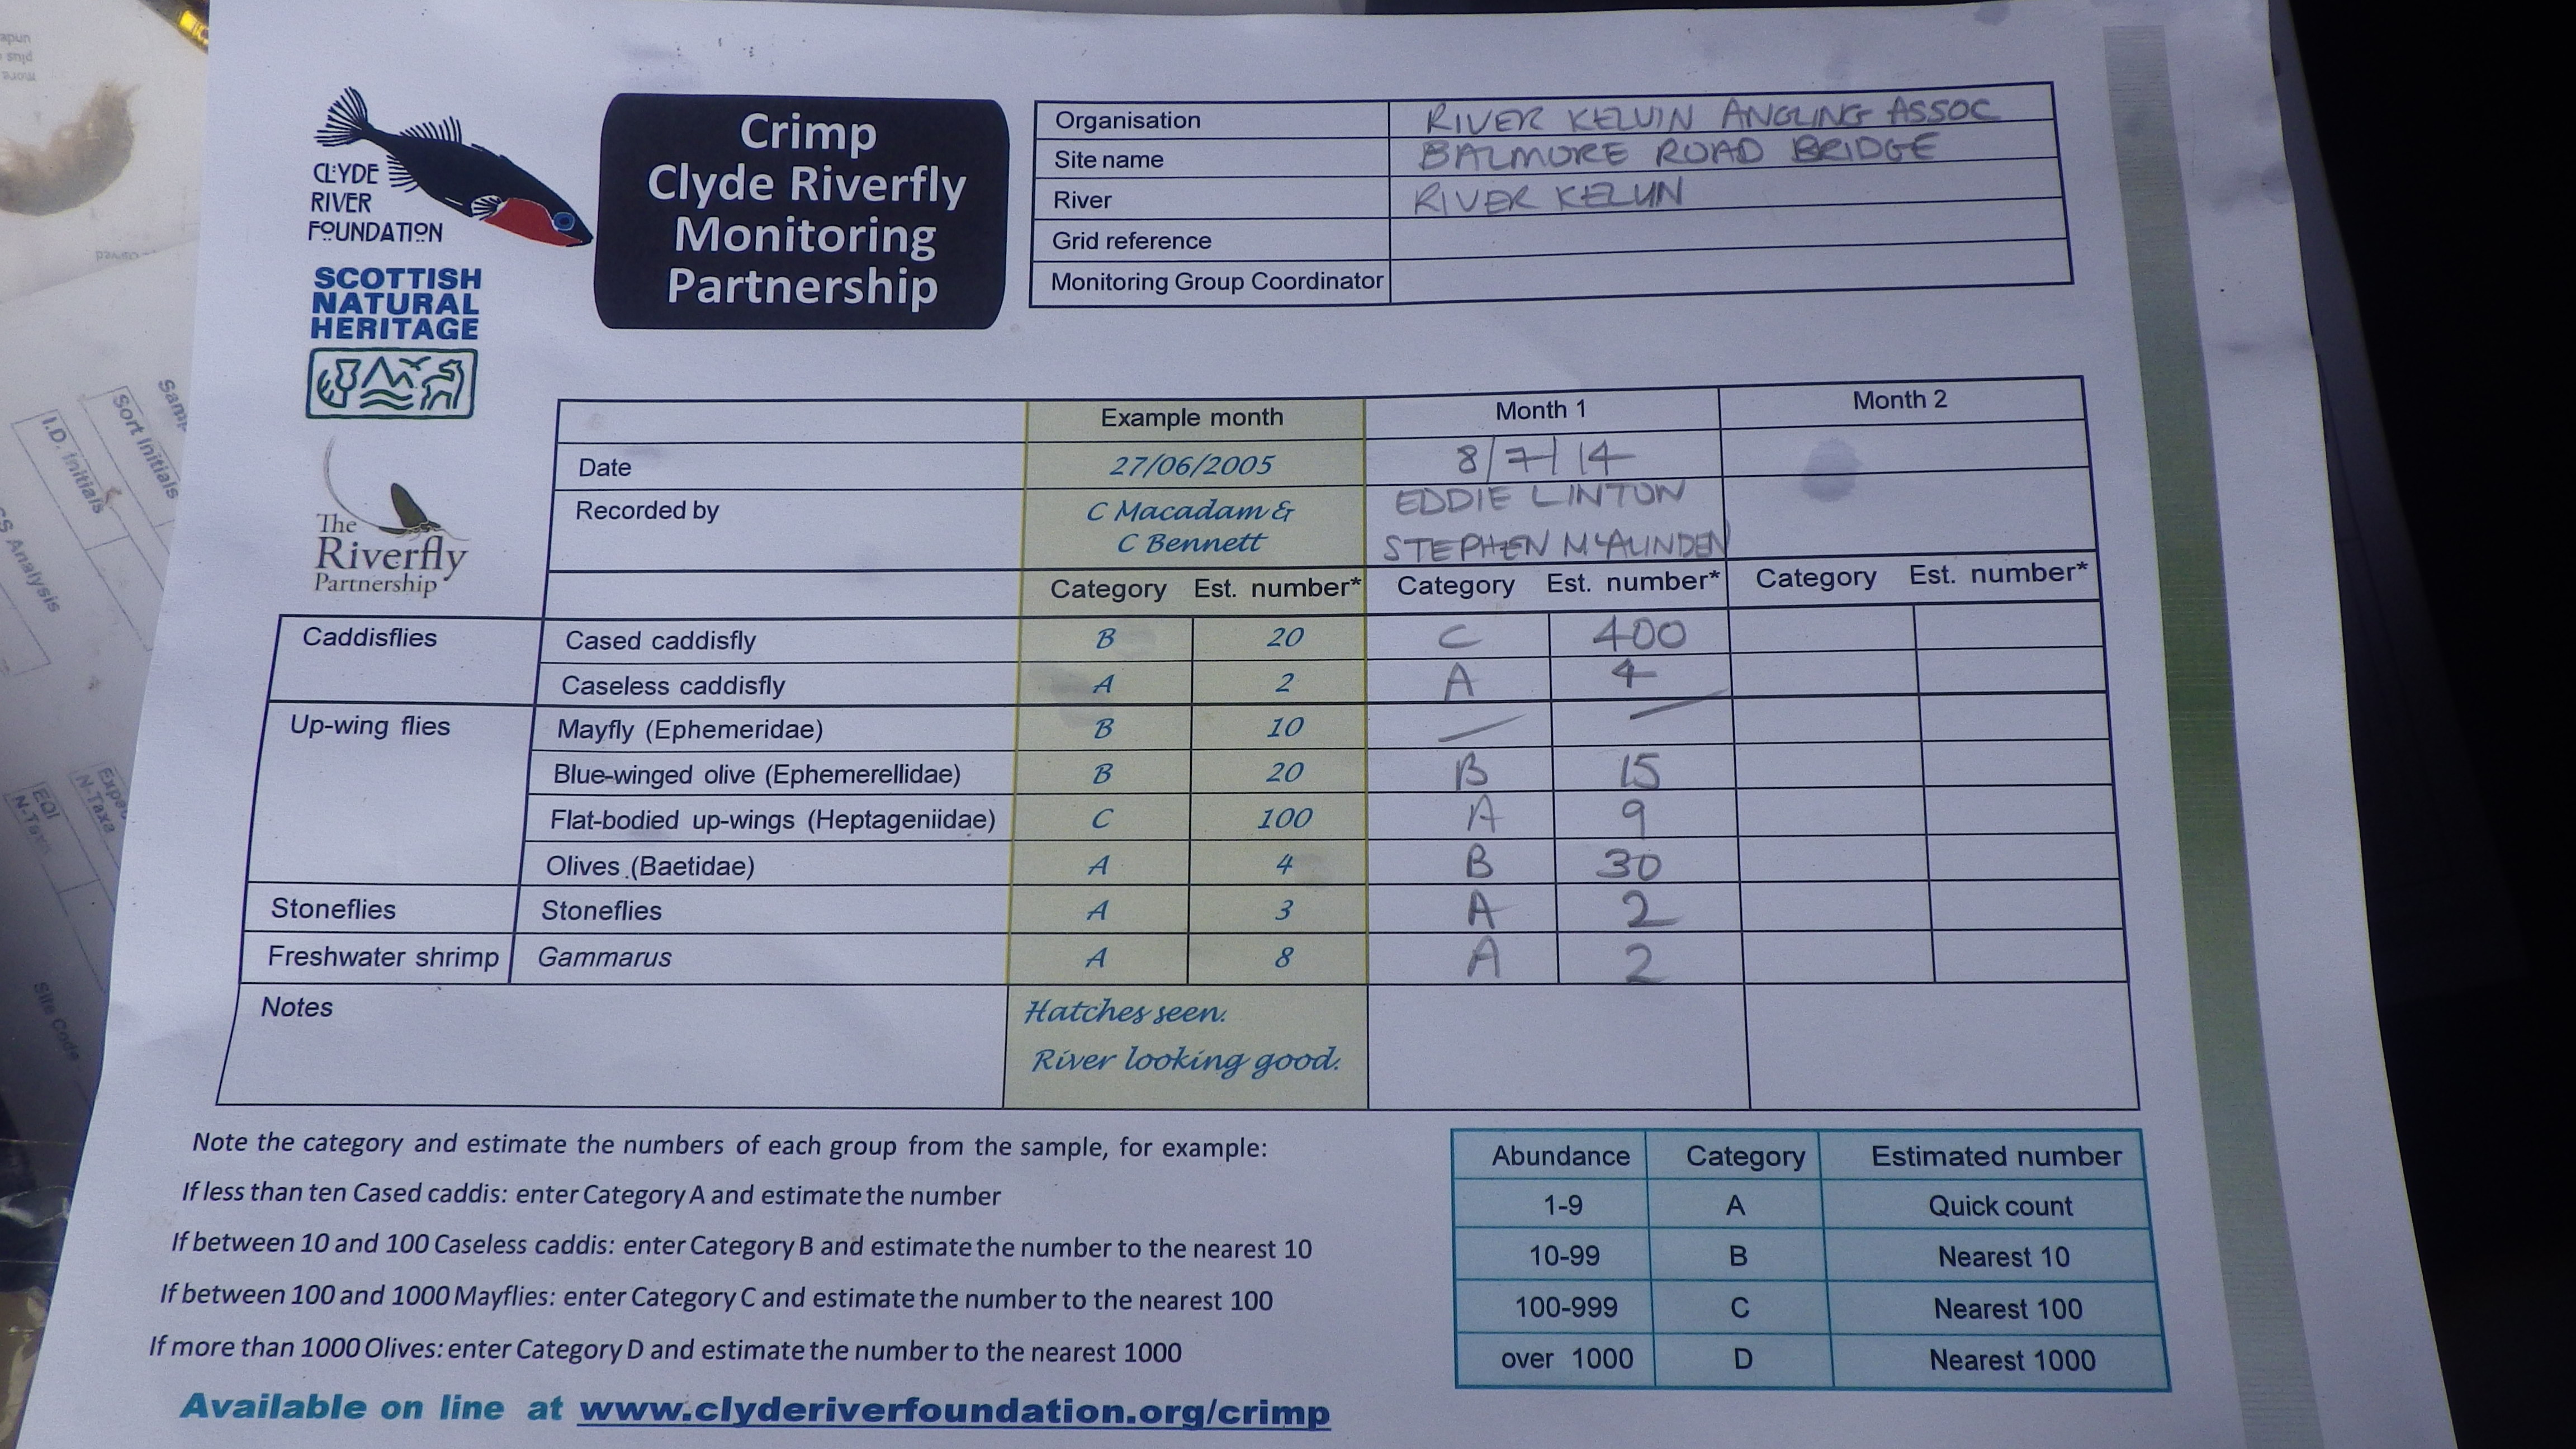 CLYDE
RIVER
FOUNDATION
SCOTTISH
NATURAL
HERITAGE
The
Riverfly
Partnership
Crimp
Clyde Riverfly
Monitoring
Partnership
Organisation RIVER KELVIN ANGLING ASSOC
Site name BALMORE ROAD BRIDGE
River RIVER KELVIN
Grid reference
Monitoring Group Coordinator
Example month Month 1 Month 2
Date 27/06/2005 8/7/14
Recorded by C Macadam & C Bennett EDDIE LINTON STEPHEN McALINDEN
Category Est. number* Category Est. number* Category Est. number*
Caddisflies Cased caddisfly B 20 C 400
Caseless caddisfly A 2 A 4
Up-wing flies Mayfly (Ephemeridae) B 10 — —
Blue-winged olive (Ephemerellidae) B 20 B 15
Flat-bodied up-wings (Heptageniidae) C 100 A 9
Olives (Baetidae) A 4 B 30
Stoneflies Stoneflies A 3 A 2
Freshwater shrimp Gammarus A 8 A 2
Notes Hatches seen.
River looking good.
Note the category and estimate the numbers of each group from the sample, for example:
If less than ten Cased caddis: enter Category A and estimate the number
If between 10 and 100 Caseless caddis: enter Category B and estimate the number to the nearest 10
If between 100 and 1000 Mayflies: enter Category C and estimate the number to the nearest 100
If more than 1000 Olives: enter Category D and estimate the number to the nearest 1000
Available on line at www.clyderiverfoundation.org/crimp
Abundance Category Estimated number
1-9 A Quick count
10-99 B Nearest 10
100-999 C Nearest 100
over 1000 D Nearest 1000
Sort Initials
I.D. Initials
Analysis
Site Code